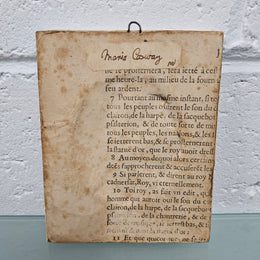 Marie Conway
ne se prosternera, sera ietté à ces-
me heure-là, au milieu de la fourn
feu ardent.
7 Pourtant au mesme instant, si to
tous les peuples ouirent le son du
clairon, de la harpe, de la sacquebou
psalterion, & de toute sorte de m
tous les peuples, les nations, & les
se ietterent bas, & se prosternerent
la statuë d'or, que le roy auoit dres
8 Au moyen dequoi alors certains
s'approcherent & accuserent les
9 Si parlerent, & dirent au roy
cadnetsar, Roy, vi eternellement.
10 Toi roy, as fait vn edit, qu
homme qui auroit ouï le son du c
clairon, de la harpe, de la sacqueb
psalterion, de la chanterie, & de
sorte de musique, se ietteroit bas, &
11 Et que quiconque ne se